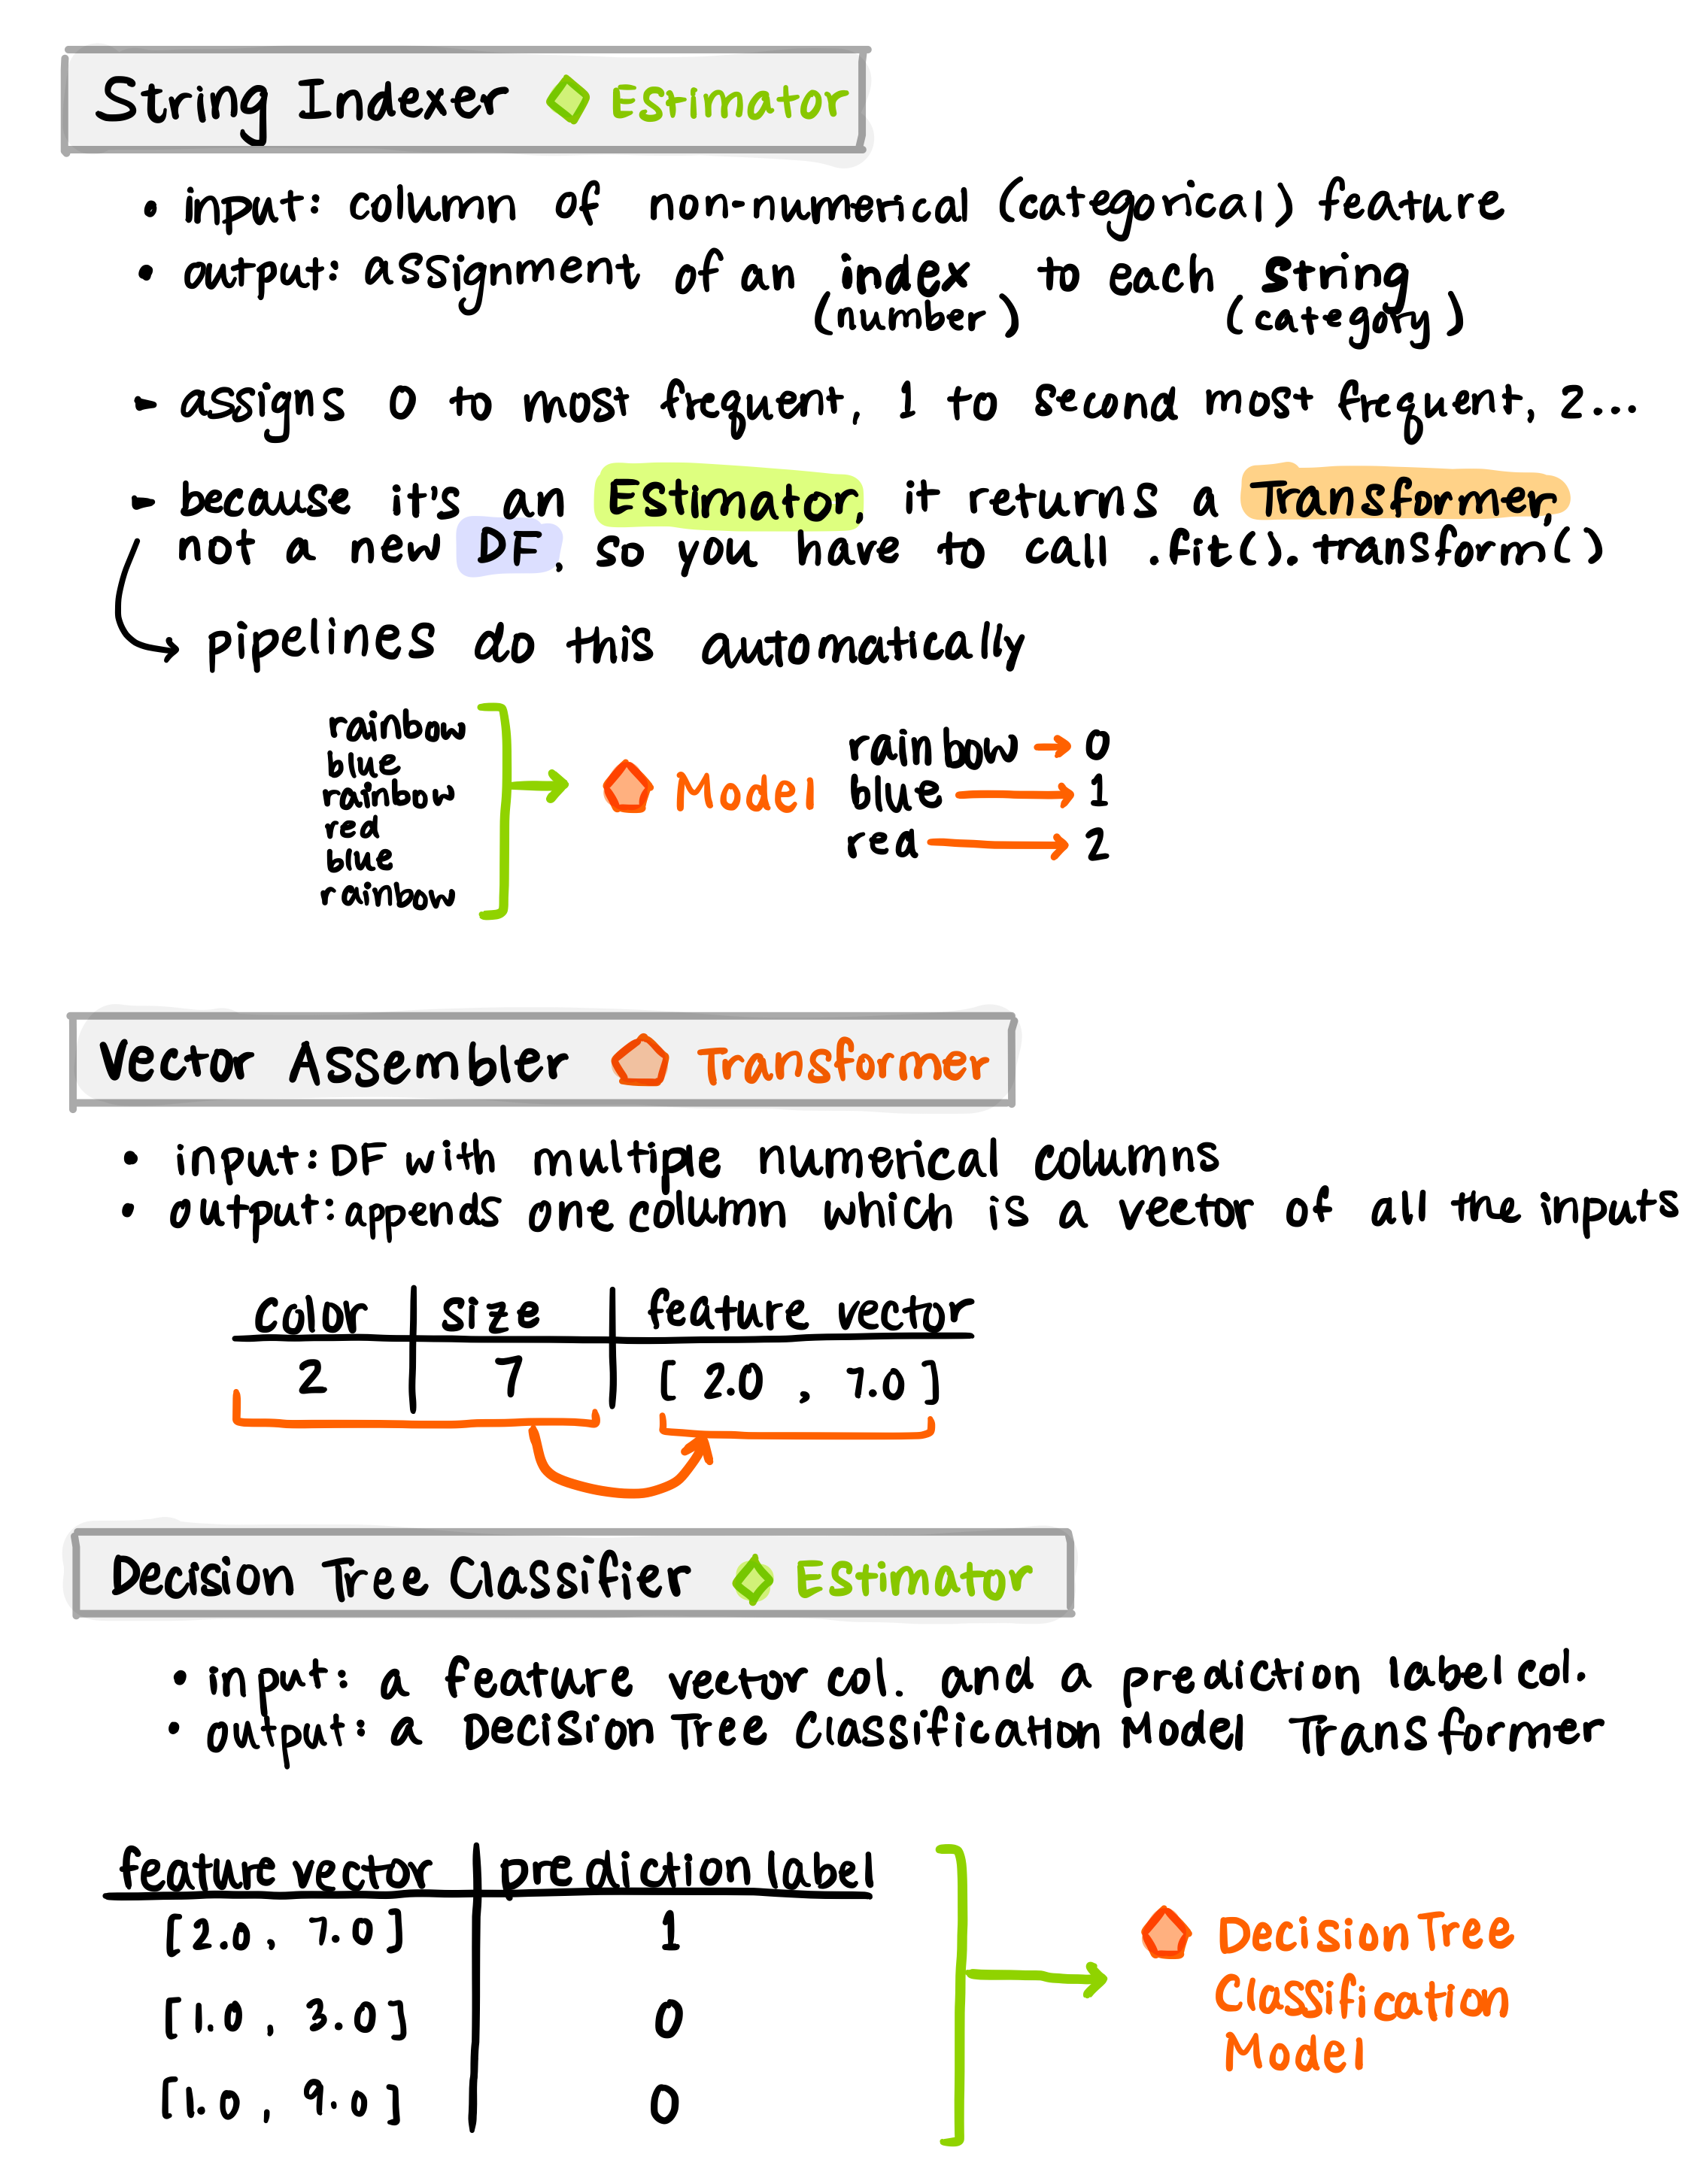 String Indexer Estimator
• input: column of non-numerical (categorical) feature
• output: assignment of an index to each string
(number) (category)
- assigns 0 to most frequent, 1 to second most frequent, 2...
- because it's an Estimator, it returns a Transformer,
not a new DF, so you have to call .fit().transform()
→ pipelines do this automatically
rainbow
blue
rainbow
red
blue
rainbow
Model
rainbow → 0
blue → 1
red → 2
Vector Assembler Transformer
• input: DF with multiple numerical columns
• output: appends one column which is a vector of all the inputs
color size feature vector
2 7 [ 2.0 , 7.0 ]
Decision Tree Classifier Estimator
• input: a feature vector col. and a prediction label col.
• output: a Decision Tree Classification Model Transformer
feature vector prediction label
[2.0, 7.0] 1
[1.0, 3.0] 0
[1.0, 9.0] 0
Decision Tree
Classification
Model